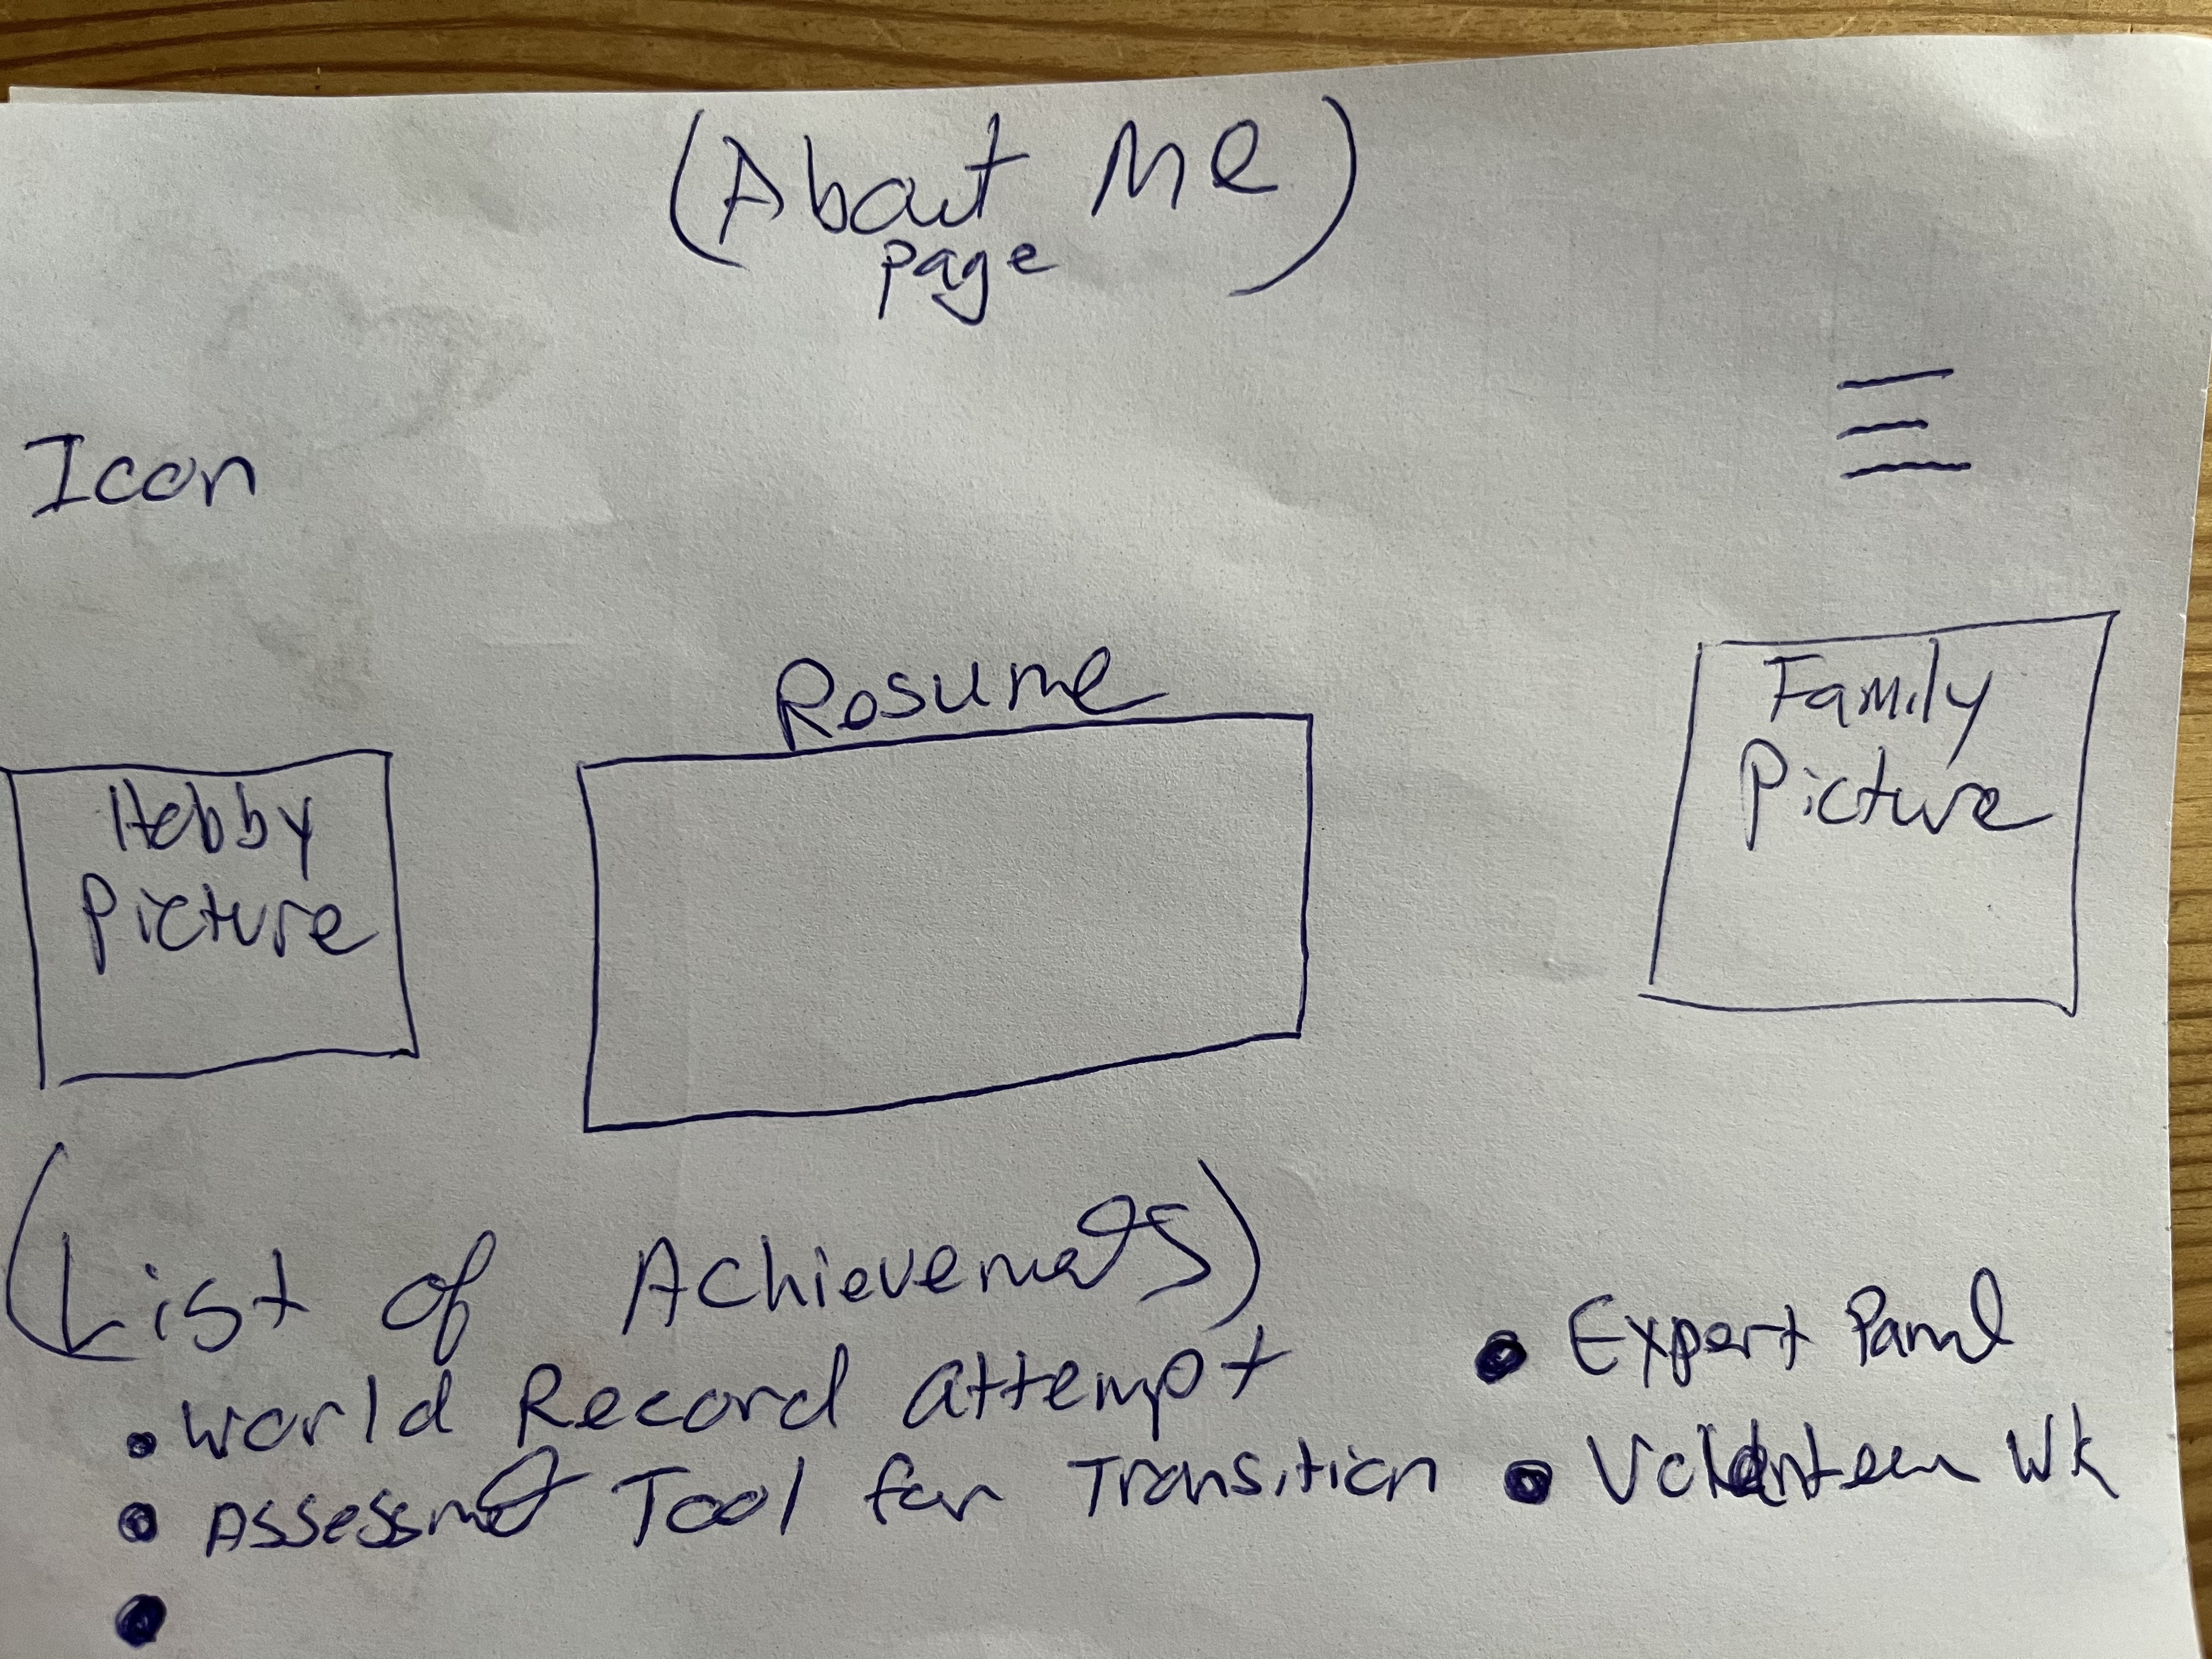 (About Me)
page
Icon
Resume
Family
Picture
Hobby
Picture
(List of Achievements)
• World Record attempt
• Assessment Tool for Transition
•
• Expert Panel
• Volunteer Wk